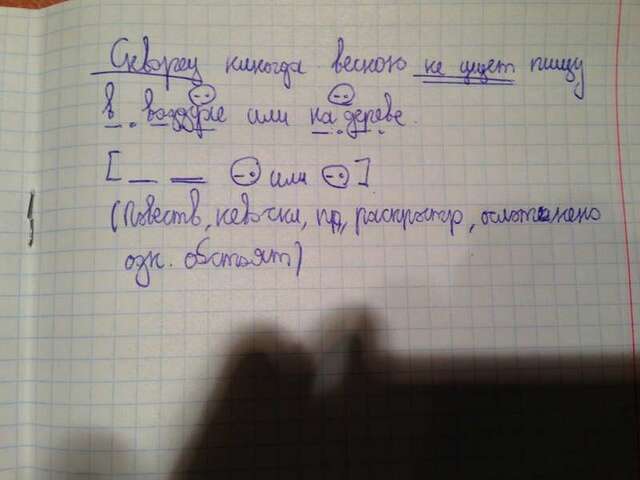 Скворец никогда весною не ищет пищу
в воздухе или на дереве.
[ — = или ]
(Повеств, невоскл, пр, распростр, осложнено
одн. обстоят)